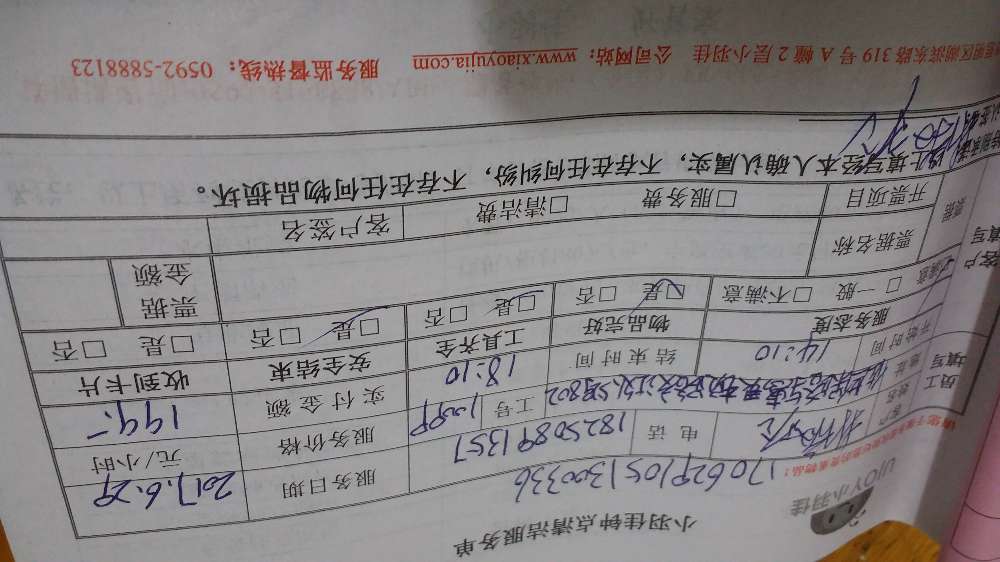 UJOY小羽佳
小羽佳钟点清洁服务单
1706291051300336
客户姓名 电话 18250891357 服务日期 2017.6.29
工号 1099 服务价格 元/小时
开始时间 14:10 结束时间 18:10 实付金额 199.-
服务态度 物品完好 工具齐全 安全结束 收到卡片
□满意 □一般 □不满意 □是 □否 □是 □否 □是 □否 □是 □否
票据名称 票据金额
开票项目 □服务费 □清洁费 客户签名
员工填写
客户填写
以上填写经本人确认属实，不存在纠纷，不存在任何物品损坏。
湖滨东路 319 号 A 幢 2 层小羽佳 公司网站：www.xiaoyujia.com 服务监督热线：0592-5888123